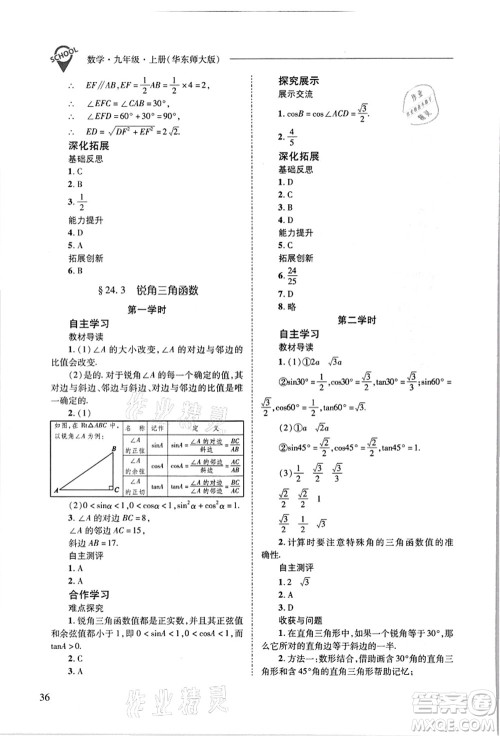 SCHOOL
数学·九年级·上册(华东师大版)
∴ EF∥AB, EF=1/2 AB=1/2×4=2.
∴ ∠EFC=∠ABC=30°.
∴ ∠EFD=60°+30°=90°.
∴ ED=√(DF²+EF²)=2√2.
深化拓展
基础反思
1. C
2. C
3. 1/2
能力提升
4. D
5. A
拓展创新
6. C
§24.3 锐角三角函数
第一学时
自主学习
教材导读
1. (1)∠A 的大小改变,∠A 的对边与邻边的
比值会改变.
(2)是的. 对于锐角 A 的每一个确定的值,其
对边与斜边、邻边与斜边、对边与邻边的比值也是唯
一确定的.
2. (1)
如图,在 Rt△ABC 中,
以锐角∠A 为例:
B
A
C
名称 记作 定义
∠A 的正弦 sinA sinA=∠A 的对边/斜边=BC/AB
∠A 的余弦 cosA cosA=∠A 的邻边/斜边=AC/AB
∠A 的正切 tanA tanA=∠A 的对边/∠A 的邻边=BC/AC
(2)0<sinA<1,0<cosA<1,sin²α+cos²α=1
3. ∠A 的对边 BC=8,
∠A 的邻边 AC=15,
斜边 AB=17.
自主测评
1. A
2. A
合作学习
难点探究
1. 锐角三角函数值都是正实数,并且其正弦值
和余弦值都大于 0 而小于 1,但正切值只需满足
tanA>0.
2. C
3. A
36
探究展示
展示交流
1. cosB=cos∠ACD=√3/2.
2. 4/5
深化拓展
基础反思
1. D
2. D
3. A
能力提升
4. B
5. A
拓展创新
6. 24/25
第二学时
自主学习
教材导读
1. (1)①2a √3a
②sin30°=1/2,cos30°=√3/2,tan30°=√3/3,sin60°=
√3/2,cos60°=1/2,tan60°=√3.
③√2a
④sin45°=√2/2,cos45°=√2/2,tan45°=1.
(2)1/2 √3/2 √3/3
√2/2 √2/2 1
√3/2 1/2 √3
2. 计算时要注意特殊角的三角函数值的准
确性.
自主测评
1. 2 √3
2. A
收获与问题
1. 在直角三角形中,一个锐角等于 30°,那么它
所对的直角边等于斜边的一半.
2. 方法一:数形结合,借助含 30°角的直角三角
形和含 45°角的直角三角形帮助记忆;
作业精灵
作业精灵